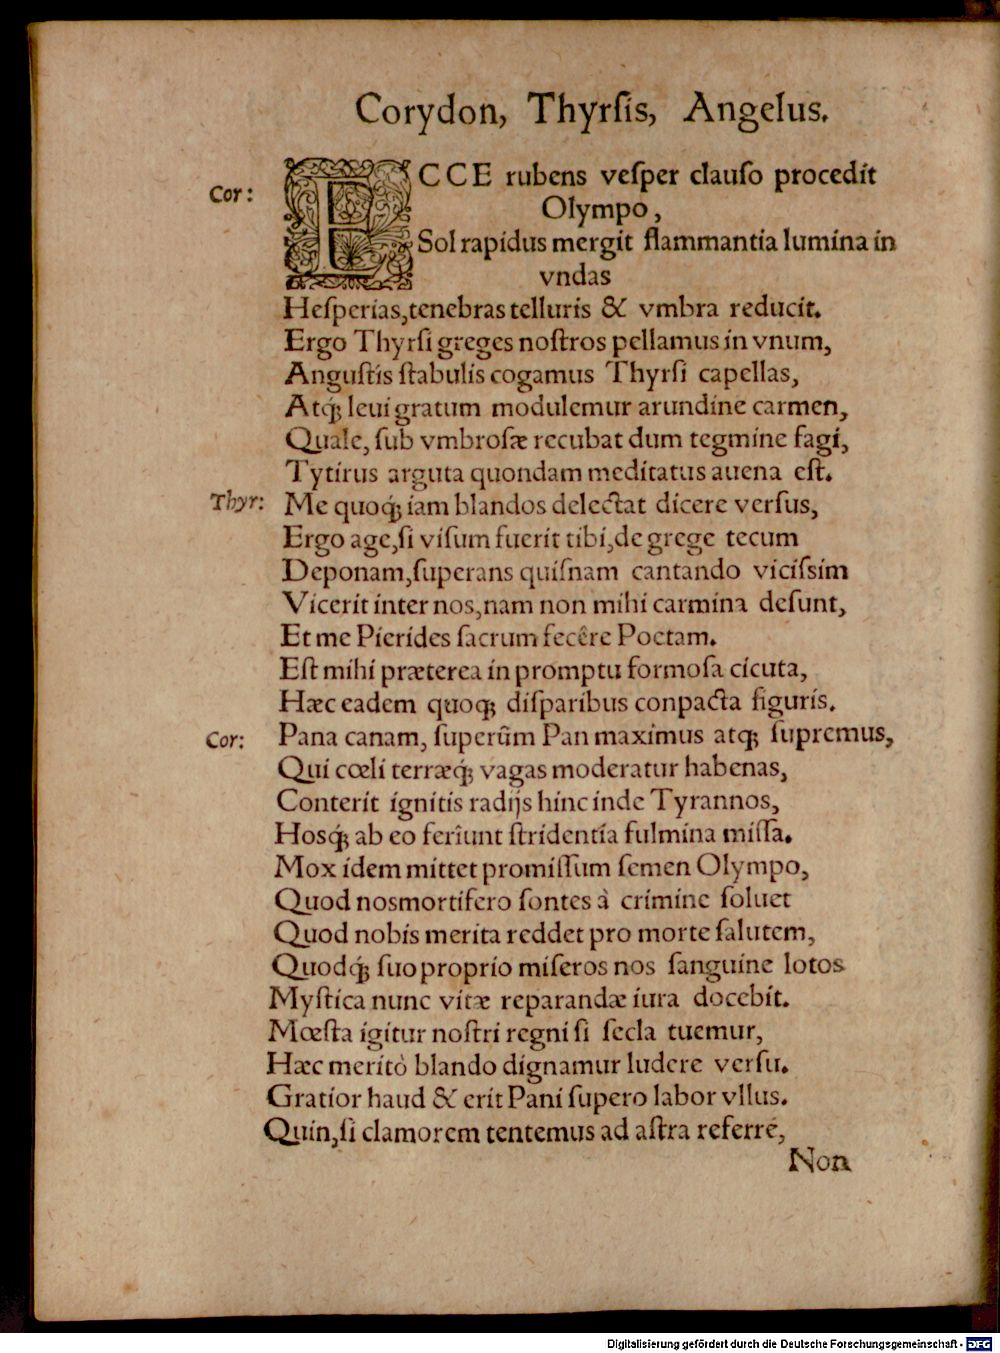 Corydon, Thyrſis, Angelus.
Cor: ECCE rubens veſper clauſo procedit
Olympo,
Sol rapidus mergit flammantia lumina in
vndas
Heſperias, tenebras telluris & vmbra reducit.
Ergo Thyrſi greges noſtros pellamus in vnum,
Anguſtis ſtabulis cogamus Thyrſi capellas,
Atq́; leui gratum modulemur arundine carmen,
Quale, ſub vmbroſæ recubat dum tegmine fagi,
Tytirus arguta quondam meditatus auena eſt.
Thyr: Me quoq́; iam blandos delectat dicere verſus,
Ergo age, ſi viſum fuerit tibi, de grege tecum
Deponam, ſuperans quiſnam cantando viciſsim
Vicerit inter nos, nam non mihi carmina deſunt,
Et me Pierides ſacrum fecêre Poetam.
Eſt mihi præterea in promptu formoſa cicuta,
Hæc eadem quoq; diſparibus conpacta figuris.
Cor: Pana canam, ſuperûm Pan maximus atq; ſupremus,
Qui cœli terræq́; vagas moderatur habenas,
Conterit ignitis radijs hinc inde Tyrannos,
Hosq́; ab eo ferîunt ſtridentia fulmina miſſa.
Mox idem mittet promiſſum ſemen Olympo,
Quod nos mortifero ſontes à crimine ſoluet
Quod nobis merita reddet pro morte ſalutem,
Quodq́; ſuo proprio miſeros nos ſanguine lotos
Myſtica nunc vitæ reparandæ iura docebit.
Mœſta igitur noſtri regni ſi ſecla tuemur,
Hæc meritò blando dignamur ludere verſu.
Gratior haud & erit Pani ſupero labor vllus.
Quin, ſi clamorem tentemus ad aſtra referre,
Non
Digitalisierung gefördert durch die Deutsche Forschungsgemeinschaft - DFG